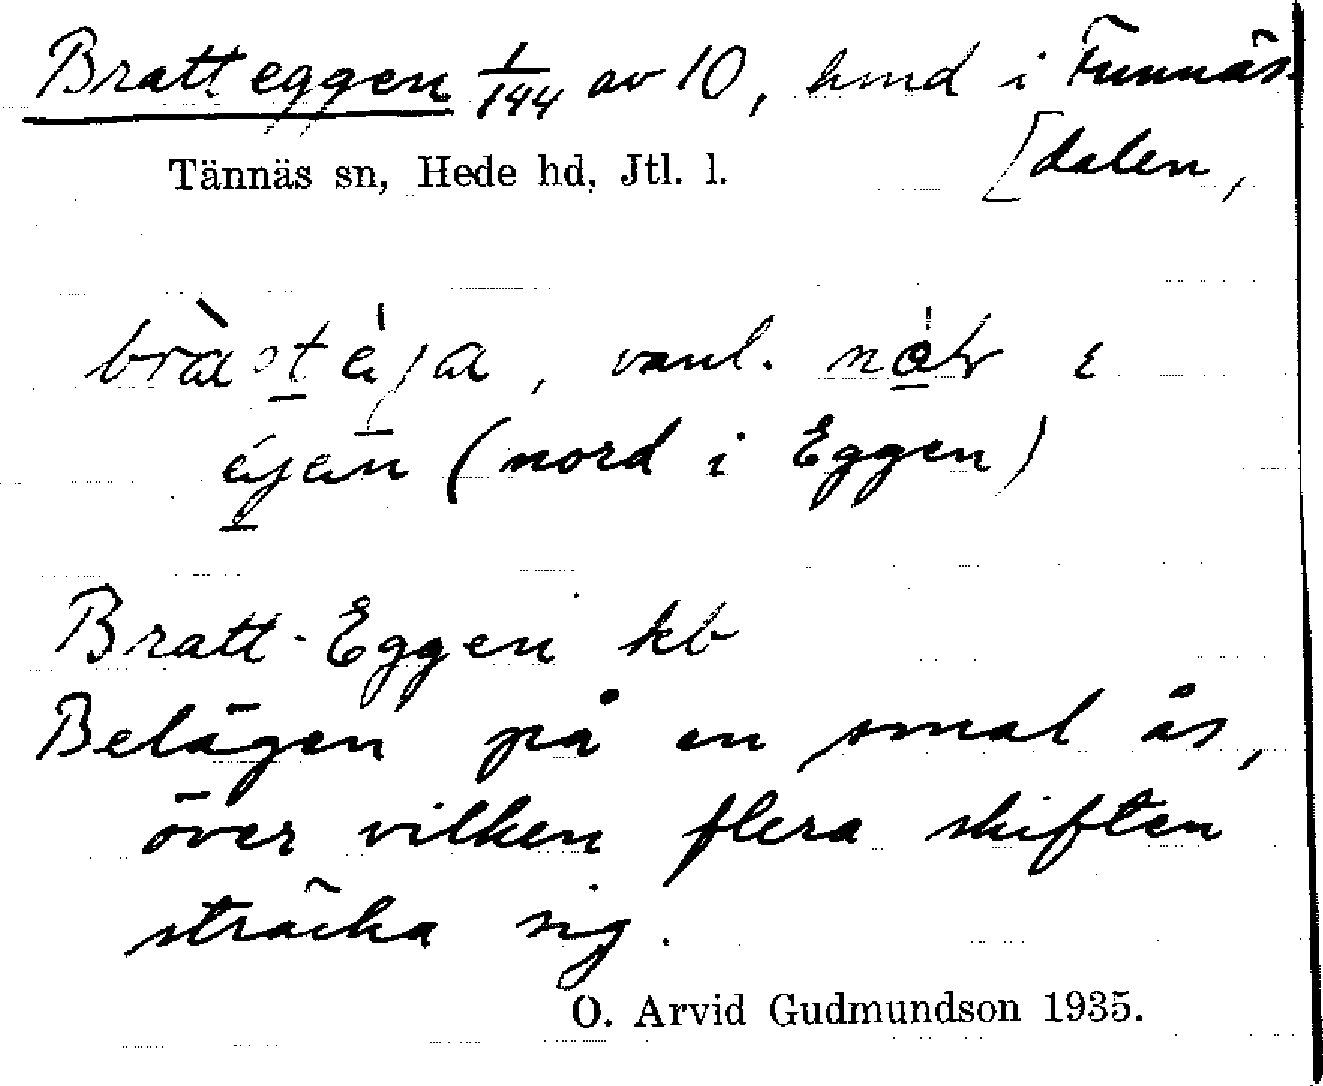 Bratteggen 1/144 av 10, hmd i Funnäs-
[dalen,
Tännäs sn, Hede hd, Jtl. l.
vanl. i
(nord i Eggen)
Bratt-Eggen kb
Belägen på en smal ås,
över vilken flera skiften
sträcka sig.
O. Arvid Gudmundson 1935.